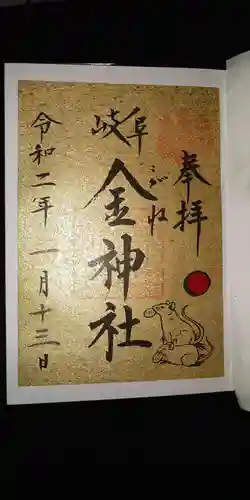 奉拝
岐阜
金神社
がね
令和二年一月十三日